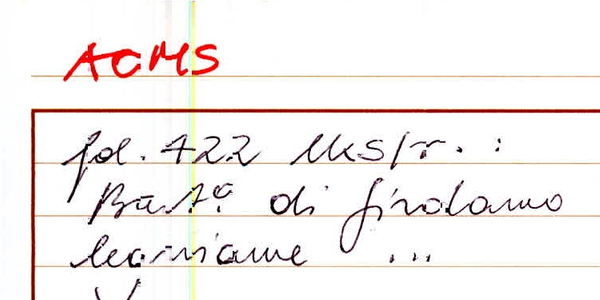 ACMS
fol. 422 Mkslr. :
Batt.ª di Girolamo
...